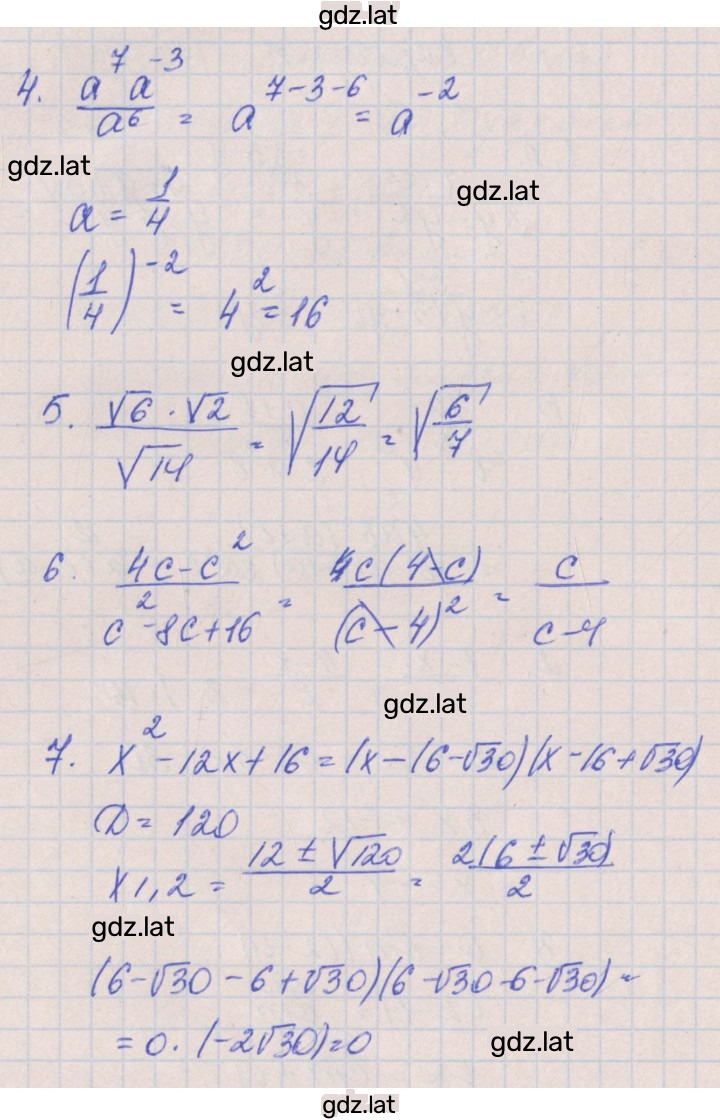 gdz.lat
4. a^7 a^-3 / a^6 = a^7-3-6 = a^-2
gdz.lat
gdz.lat
a = 1/4
(1/4)^-2 = 4^2 = 16
gdz.lat
5. √6 · √2 / √14 = √12/14 = √6/7
6. 4c - c^2 / c^2 - 8c + 16 = 4c(4-c) / (c-4)^2 = c / c-4
gdz.lat
7. x^2 - 12x + 16 = (x - (6-√30)(x - (6+√30)
D = 120
x1,2 = 12 ± √120 / 2 = 2(6 ± √30) / 2
gdz.lat
(6-√30 - 6 + √30)(6 - √30 - 6 - √30) =
= 0 · (-2√30) = 0
gdz.lat
gdz.lat